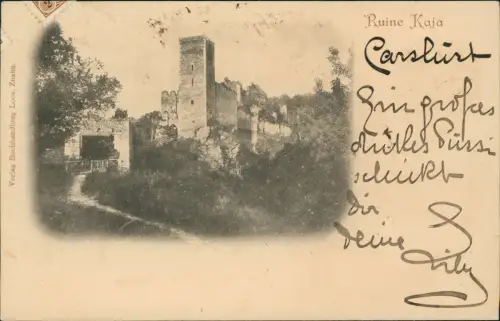 Ruine Kaja
Carslust
Ein großes
Bussi
schickt
Dir
deine Lily
Verlag Buchhandlung Lenk, Znaim.